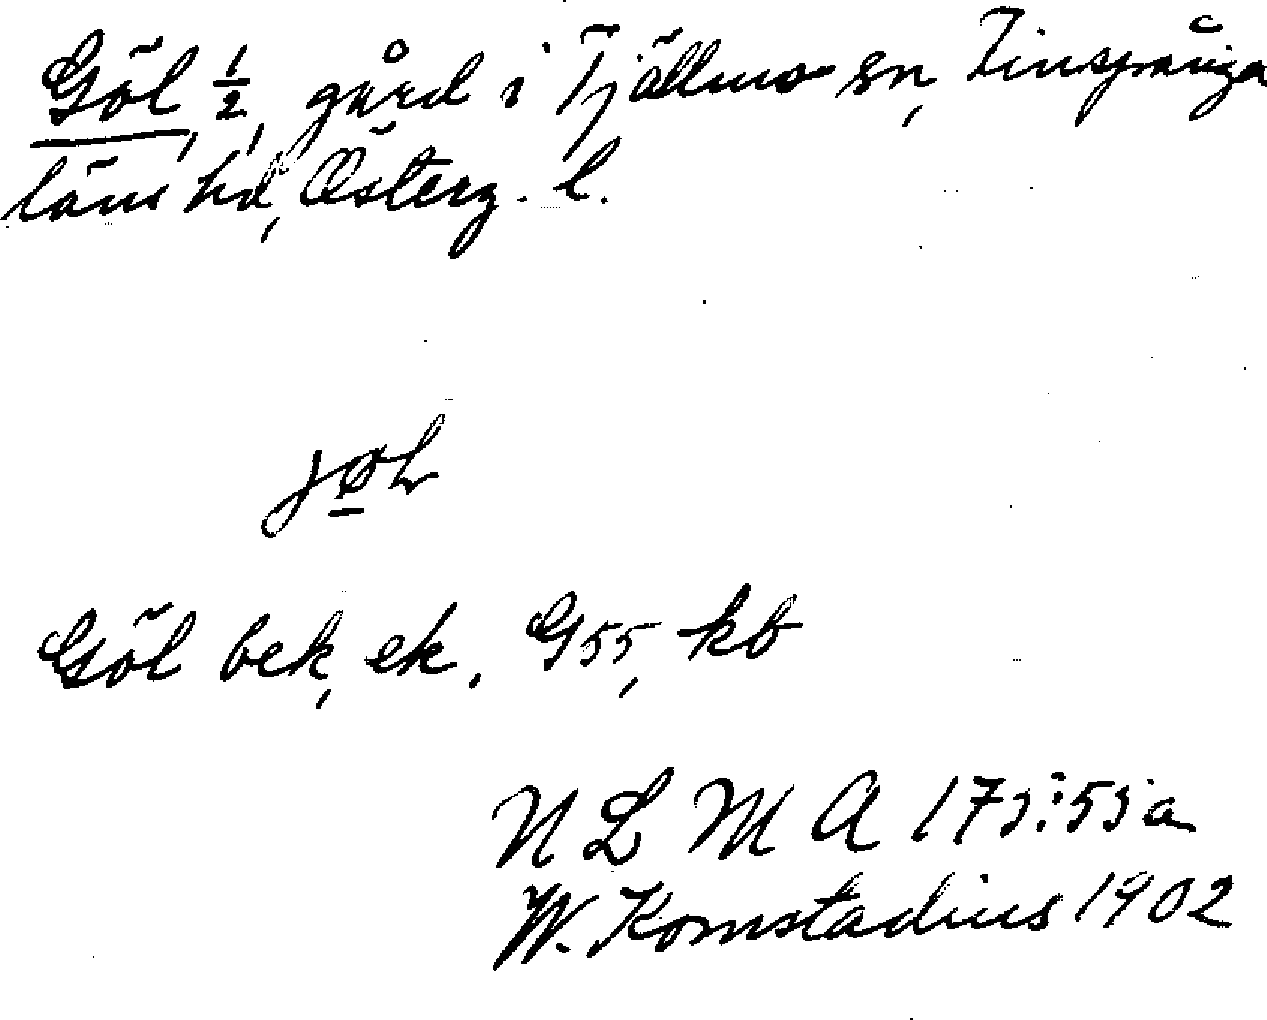 Göl, ½, gård i Tjällmo sn, Finspånga
läns hd, Österg. l.
jøl
Göl bek, ek. G55, kb
N L M A 173:53a
W. Komstadius 1902